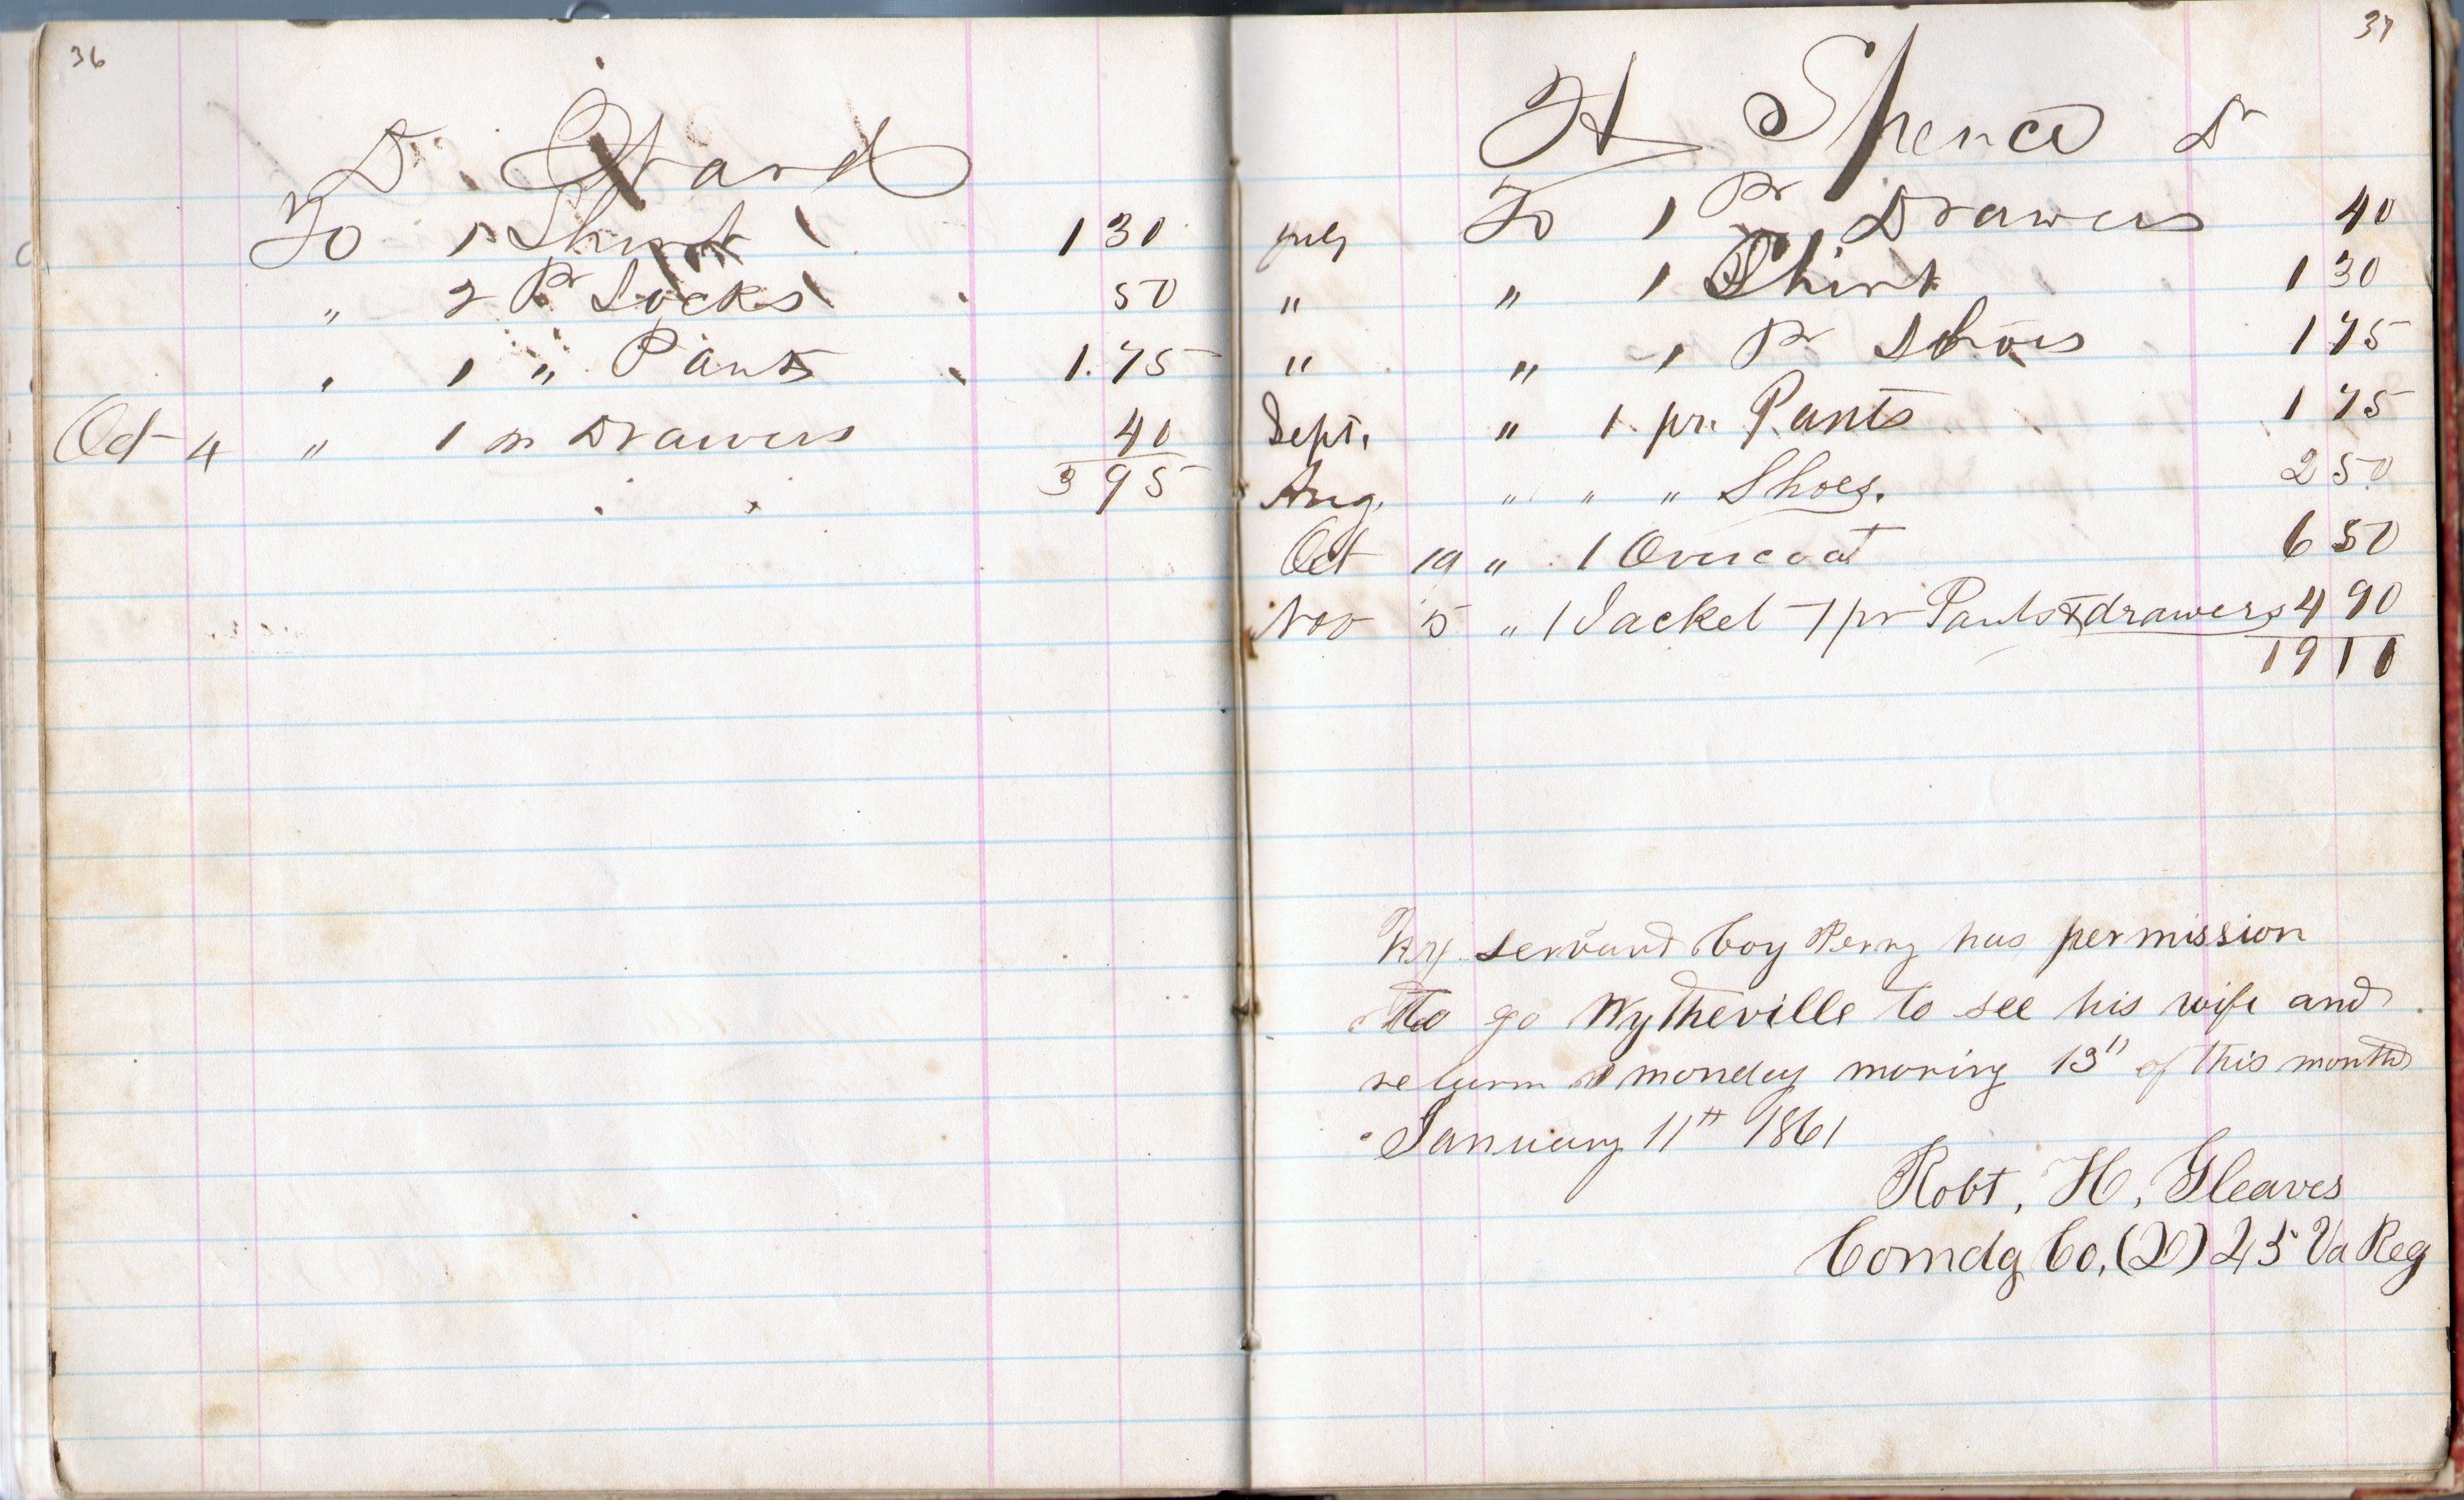 36
D. Ward
To 1 Shirt 1 30
" 2 Pr Socks 50
" 1 " Pants 1.75
Oct 4 " 1 pr Drawers 40
3 95
37
H Spence Dr
July To 1 Pr Drawers 40
" " 1 Shirt 1 30
" " 1 Pr Shoes 1 75
Sept. " 1 pr. Pants 1 75
Aug. " " " Shoes. 2 50
Oct 19 " 1 Overcoat 6 50
Nov 5 " 1 Jacket 1 pr Pants & drawers 4 90
19 10
My servant boy Perry has permission
to go Wytheville to see his wife and
return monday moring 13" of this month
January 11th 1861
Robt, H, Gleaves
Comdg Co, (D) 45 Va Reg